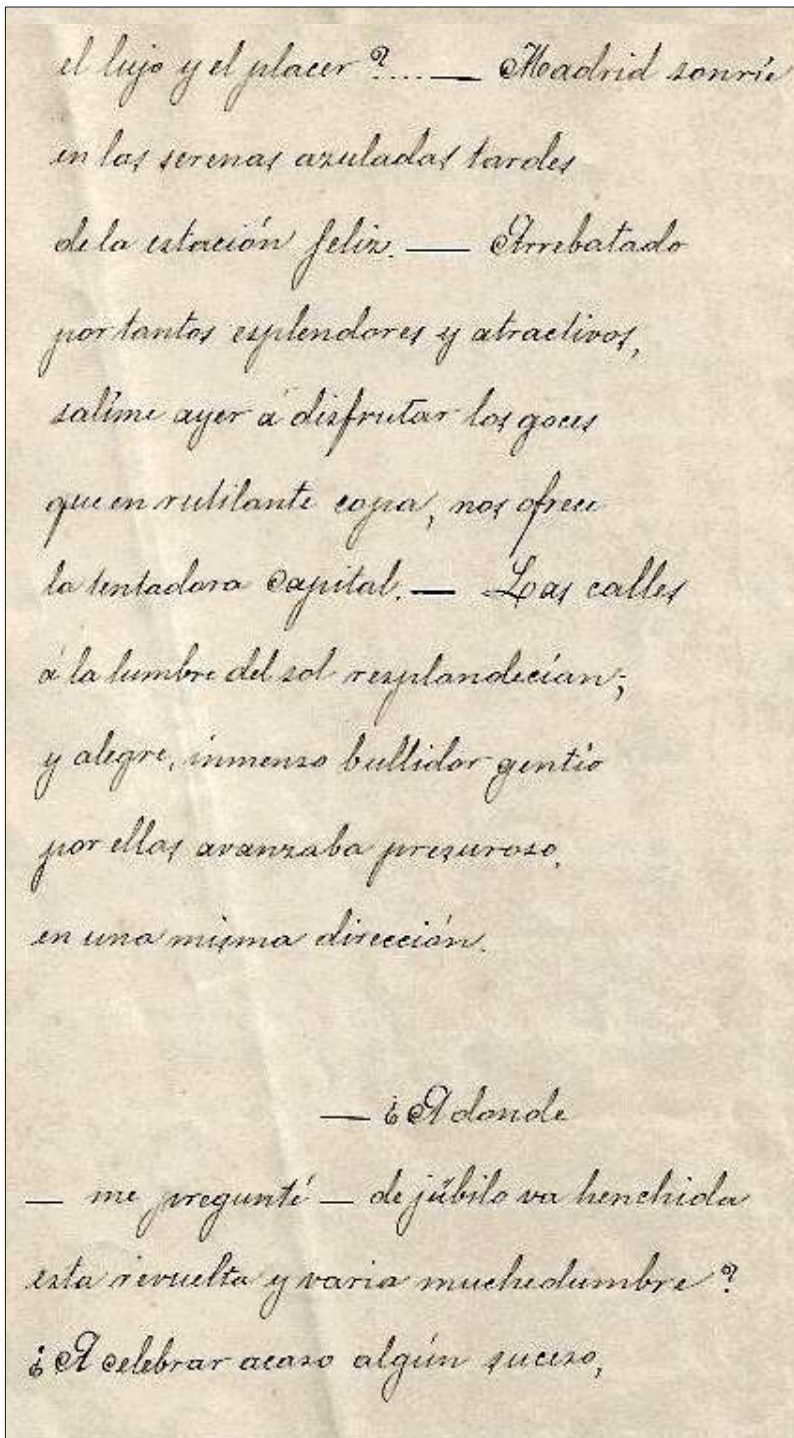 el lujo y el placer ?....— Madrid sonríe
en las serenas azuladas tardes
de la estación feliz. — Arrebatado
por tantos esplendores y atractivos,
salíme ayer á disfrutar los goces
que en rutilante copa, nos ofrece
la tentadora Capital. — Las calles
á la lumbre del sol resplandecían;
y alegre, inmenso bullidor gentío
por ellas avanzaba presuroso,
en una misma dirección.
— ¿A donde
— me pregunté — de júbilo va henchida
esta revuelta y varia muchedumbre ?
¿A celebrar acaso algún suceso,